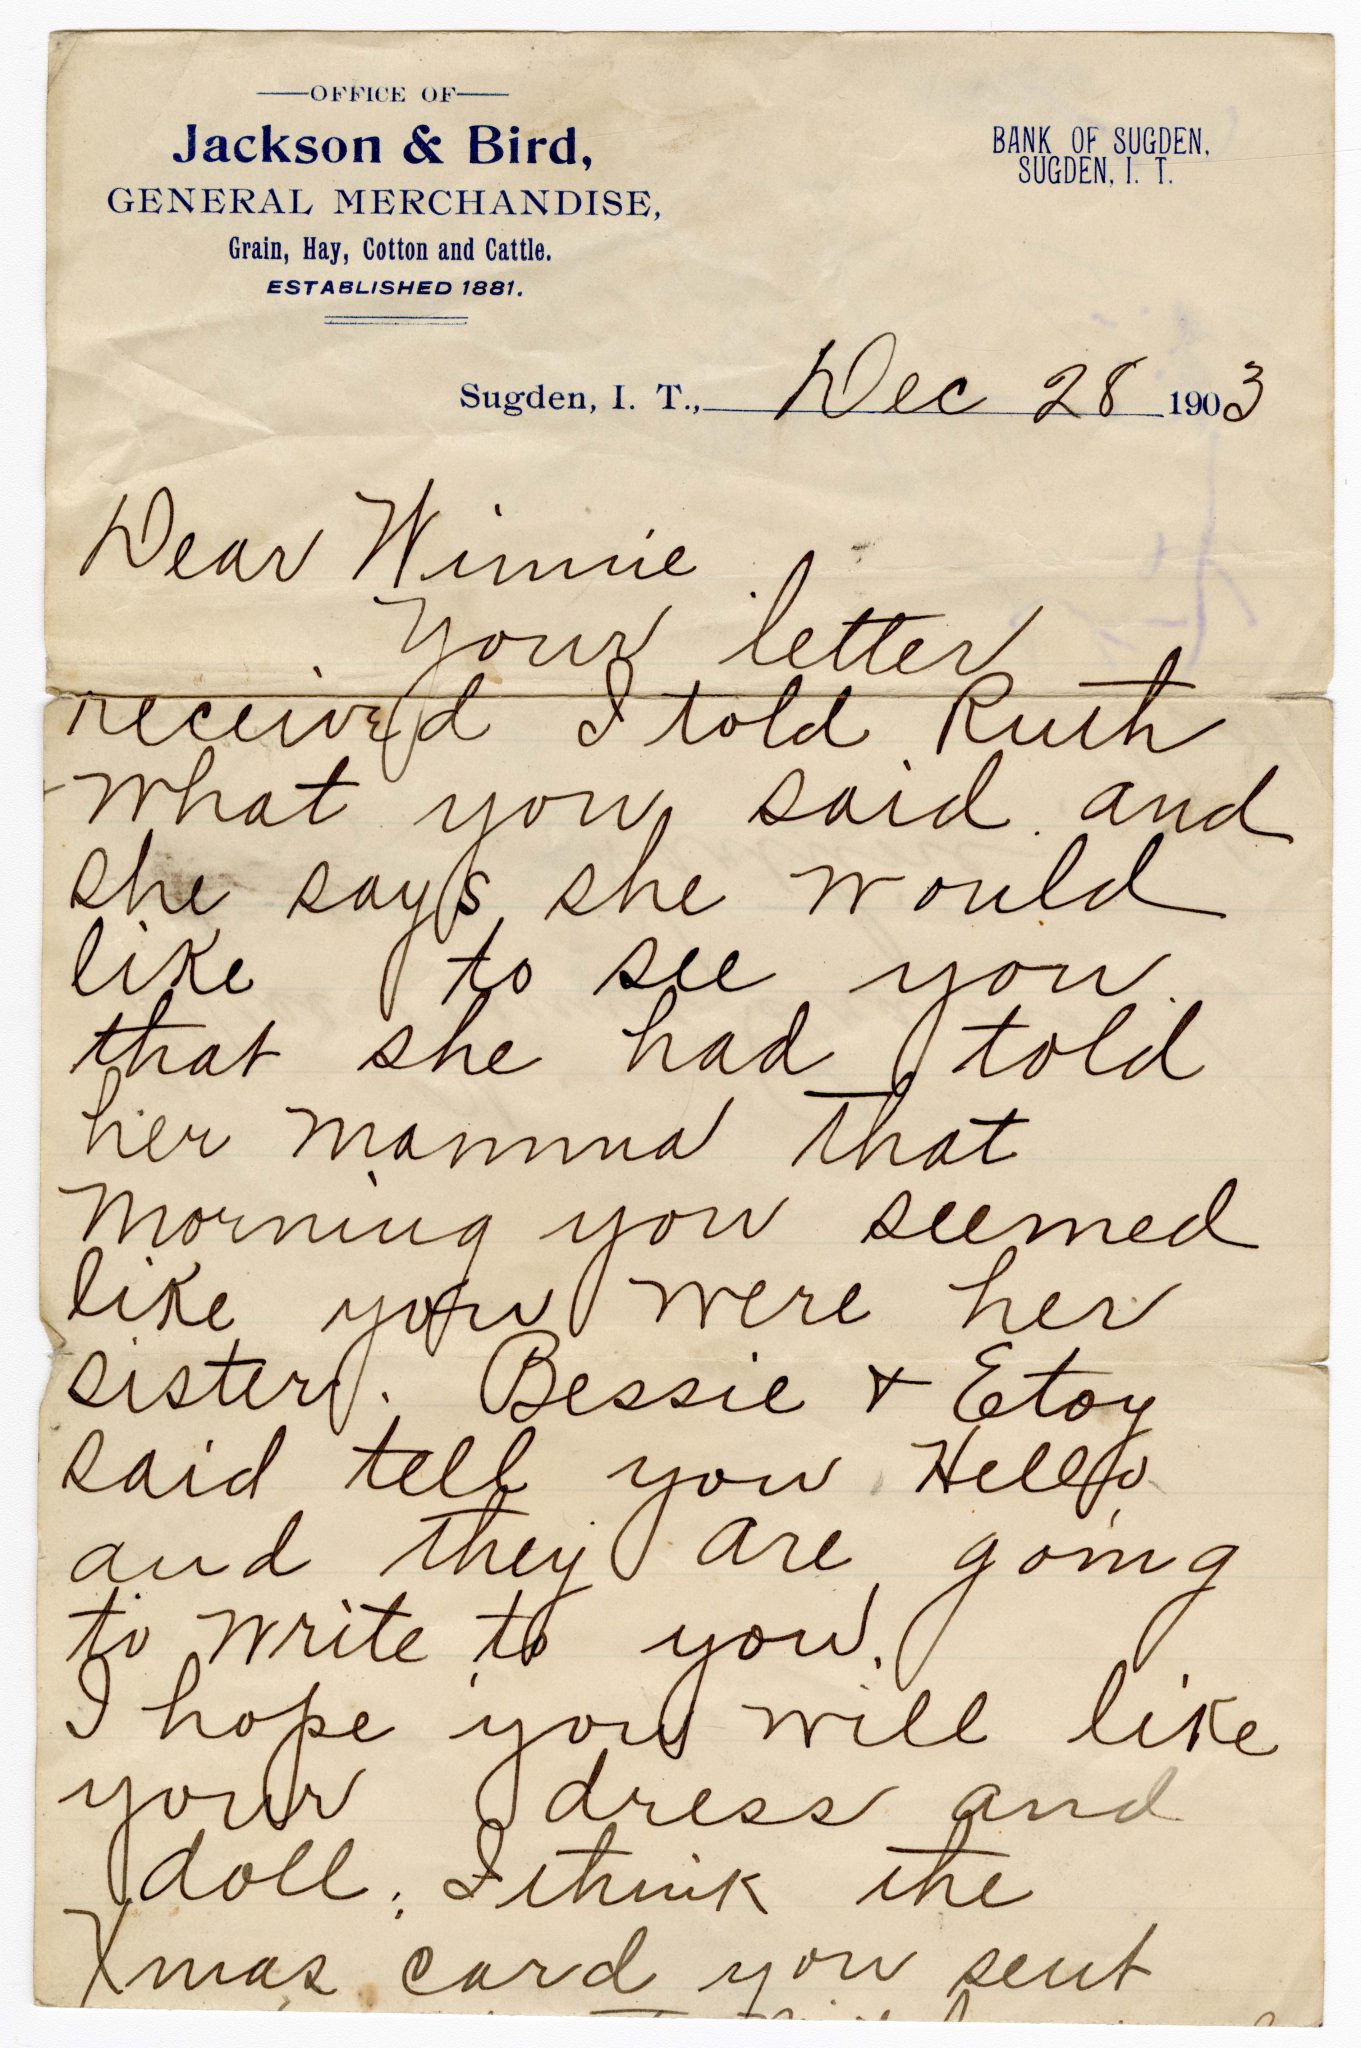 OFFICE OF
Jackson & Bird,
GENERAL MERCHANDISE,
Grain, Hay, Cotton and Cattle.
ESTABLISHED 1881.
BANK OF SUGDEN,
SUGDEN, I. T.
Sugden, I. T., Dec 28 1903
Dear Winnie
Your letter
received I told Ruth
what you said and
she says she would
like to see you
that she had told
her mamma that
morning you seemed
like you were her
sister. Bessie & Etoy
said tell you Hello
and they are going
to write to you.
I hope you will like
your dress and
doll. I think the
Xmas card you sent